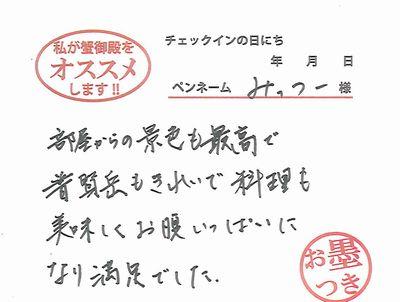 私が蟹御殿を
オススメ
します!!
チェックインの日にち
年 月 日
ペンネーム みっつー 様
部屋からの景色も最高で
普賢岳もきれいで料理も
美味しくお腹いっぱいに
なり満足でした.
お墨
つき